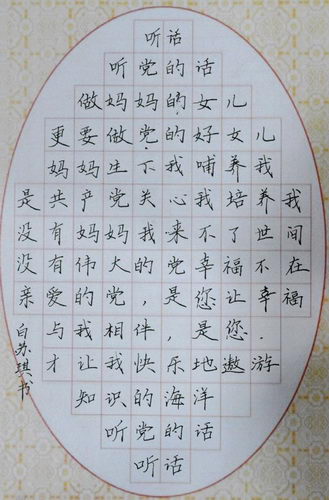 听话
听党的话
做妈妈的女儿
更要做党的好女儿
妈妈生下我哺养我
是共产党关心我培养我
没有妈妈我来不了世间
没有伟大的党幸福不在
亲爱的党，是您让幸福
与我相伴，是您．
才让我快乐地遨游
知识的海洋
听党的话
听话
白苏琪书